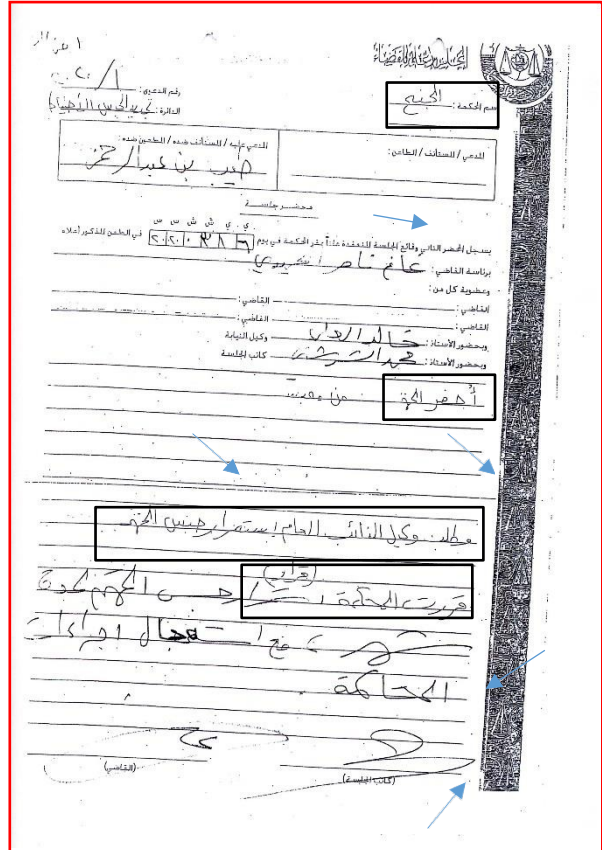 المجلس الأعلى للقضاء
اسم المحكمة : الجنح
رقم الدعوى :
الدائرة :
المدعي / المستأنف / الطاعن :
المدعي عليه / المستأنف ضده / المطعون ضده :
بن عبد الرحمن
محضر جلسة
ي ي ش ش س س
يسجل المحضر التالي وقائع الجلسة المنعقدة علناً بمقر المحكمة في يوم في الطعن المذكور أعلاه
برئاسة القاضي : ناصر
وعضوية كل من :
القاضي : القاضي :
القاضي : القاضي :
وبحضور الأستاذ : خالد وكيل النيابة
وبحضور الأستاذ : محمد كاتب الجلسة
أحضر المتهم من
وطلب وكيل النائب العام استمرار حبس المتهم
(قرار)
قررت المحكمة استمرار حبس المتهم لمدة
شهر مع استعجال اجراءات
المحاكمة
(كاتب الجلسة) (القاضي)